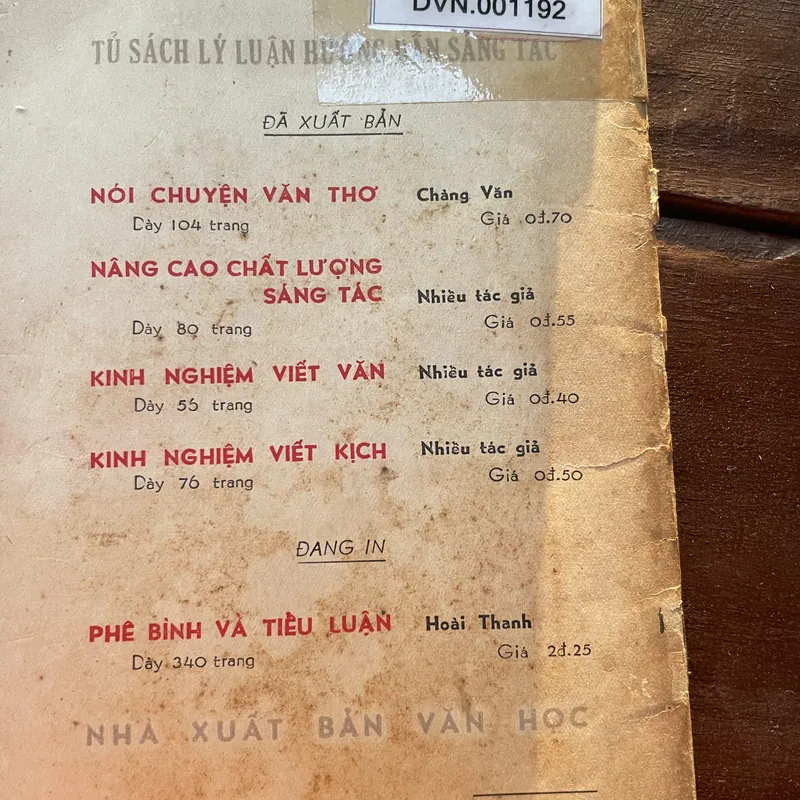 DVN.001192
TỦ SÁCH LÝ LUẬN HƯỚNG DẪN SÁNG TÁC
ĐÃ XUẤT BẢN
NÓI CHUYỆN VĂN THƠ Chàng Văn
Dày 104 trang Giá 0đ.70
NÂNG CAO CHẤT LƯỢNG
SÁNG TÁC Nhiều tác giả
Dày 80 trang Giá 0đ.55
KINH NGHIỆM VIẾT VĂN Nhiều tác giả
Dày 56 trang Giá 0đ.40
KINH NGHIỆM VIẾT KỊCH Nhiều tác giả
Dày 76 trang Giá 0đ.50
ĐANG IN
PHÊ BÌNH VÀ TIỂU LUẬN Hoài Thanh
Dày 340 trang Giá 2đ.25
NHÀ XUẤT BẢN VĂN HỌC